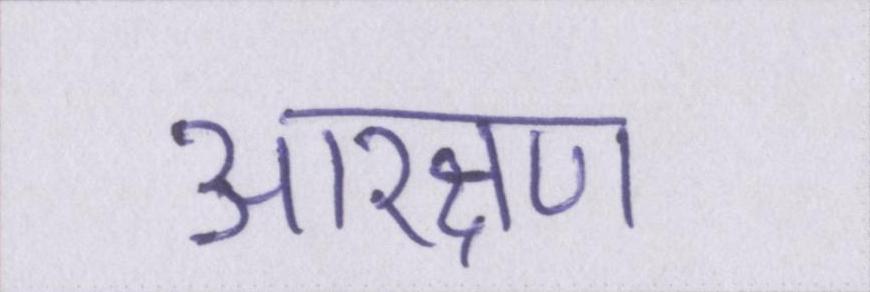 आरक्षण